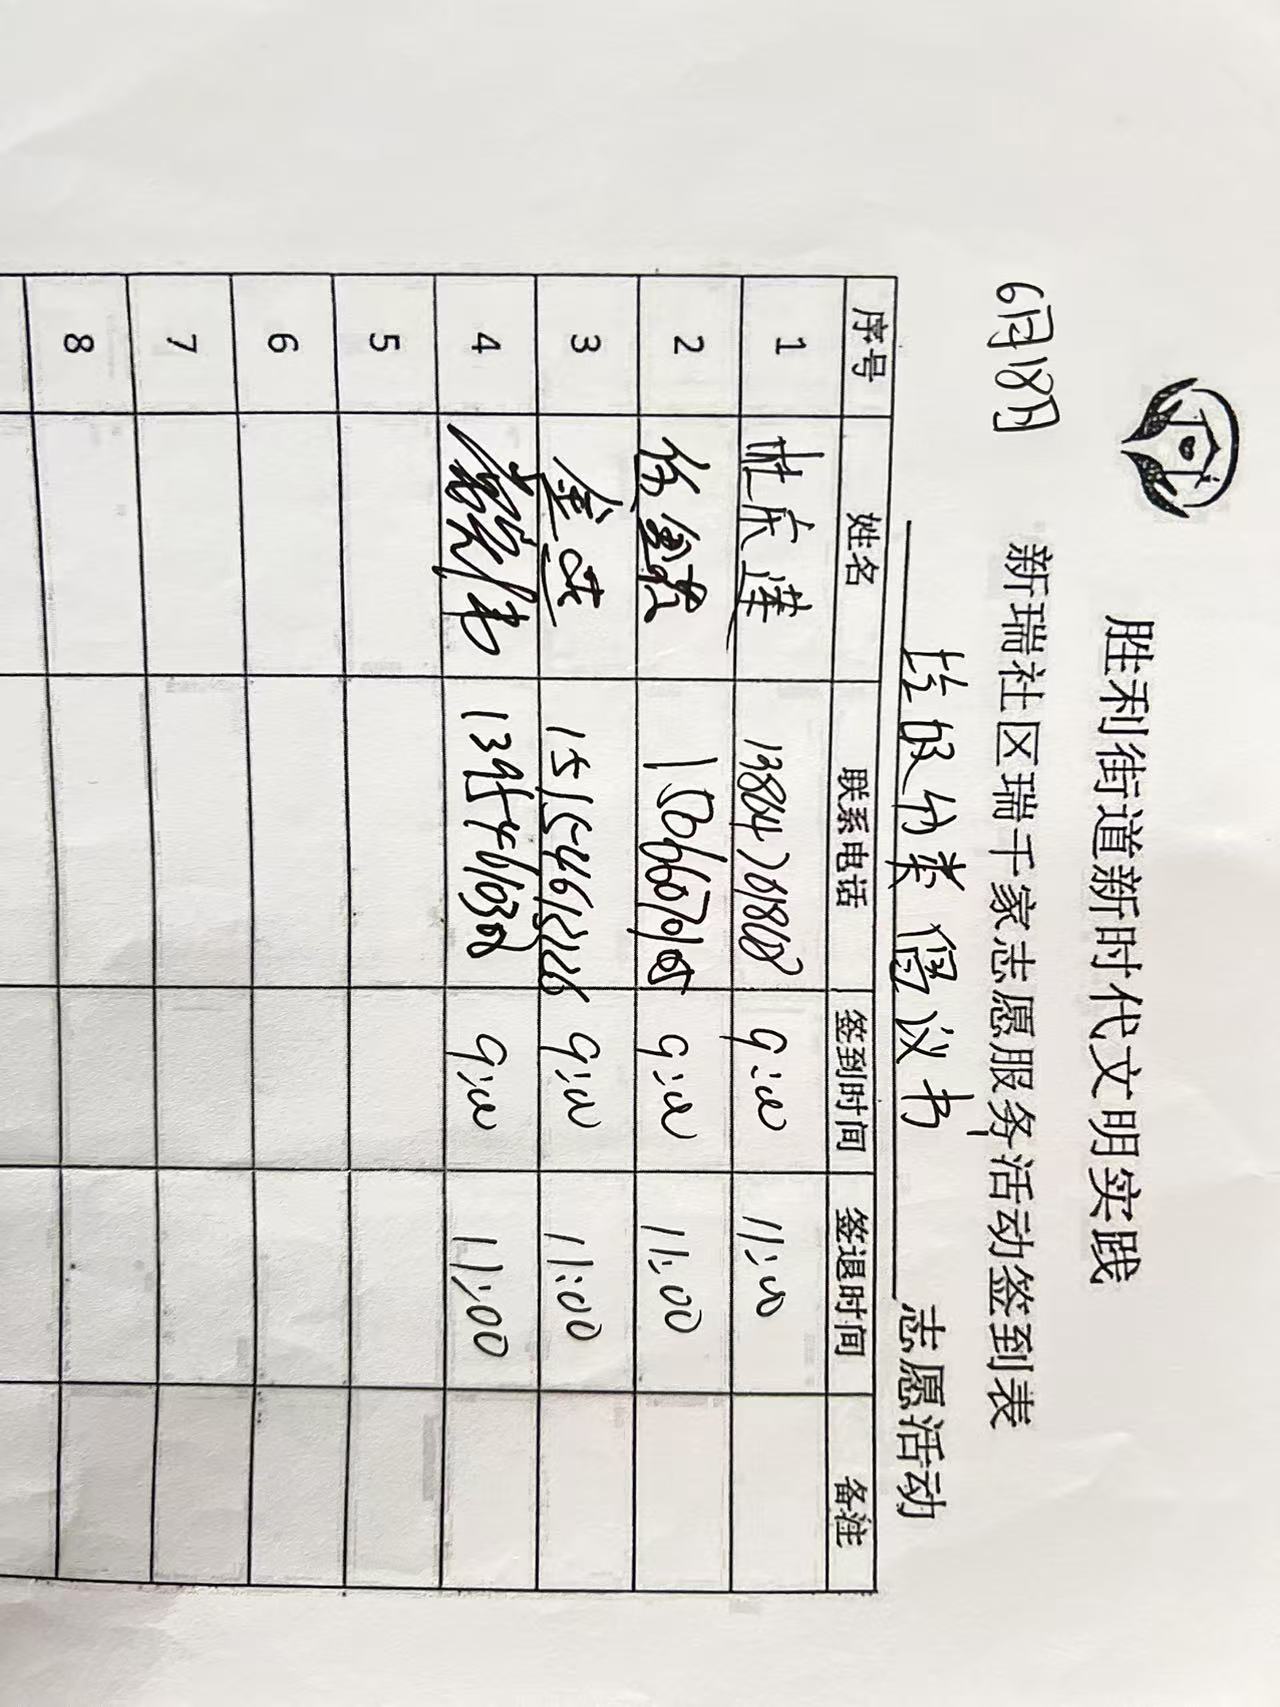 胜利街道新时代文明实践
6月18日 新瑞社区瑞千家志愿服务活动签到表
垃圾分类倡议书 志愿活动
序号 姓名 联系电话 签到时间 签退时间 备注
1 杜庆莲 13864761868 9:00 11:00
2 9:00 11:00
3 金英 9:00 11:00
4 9:00 11:00
5
6
7
8